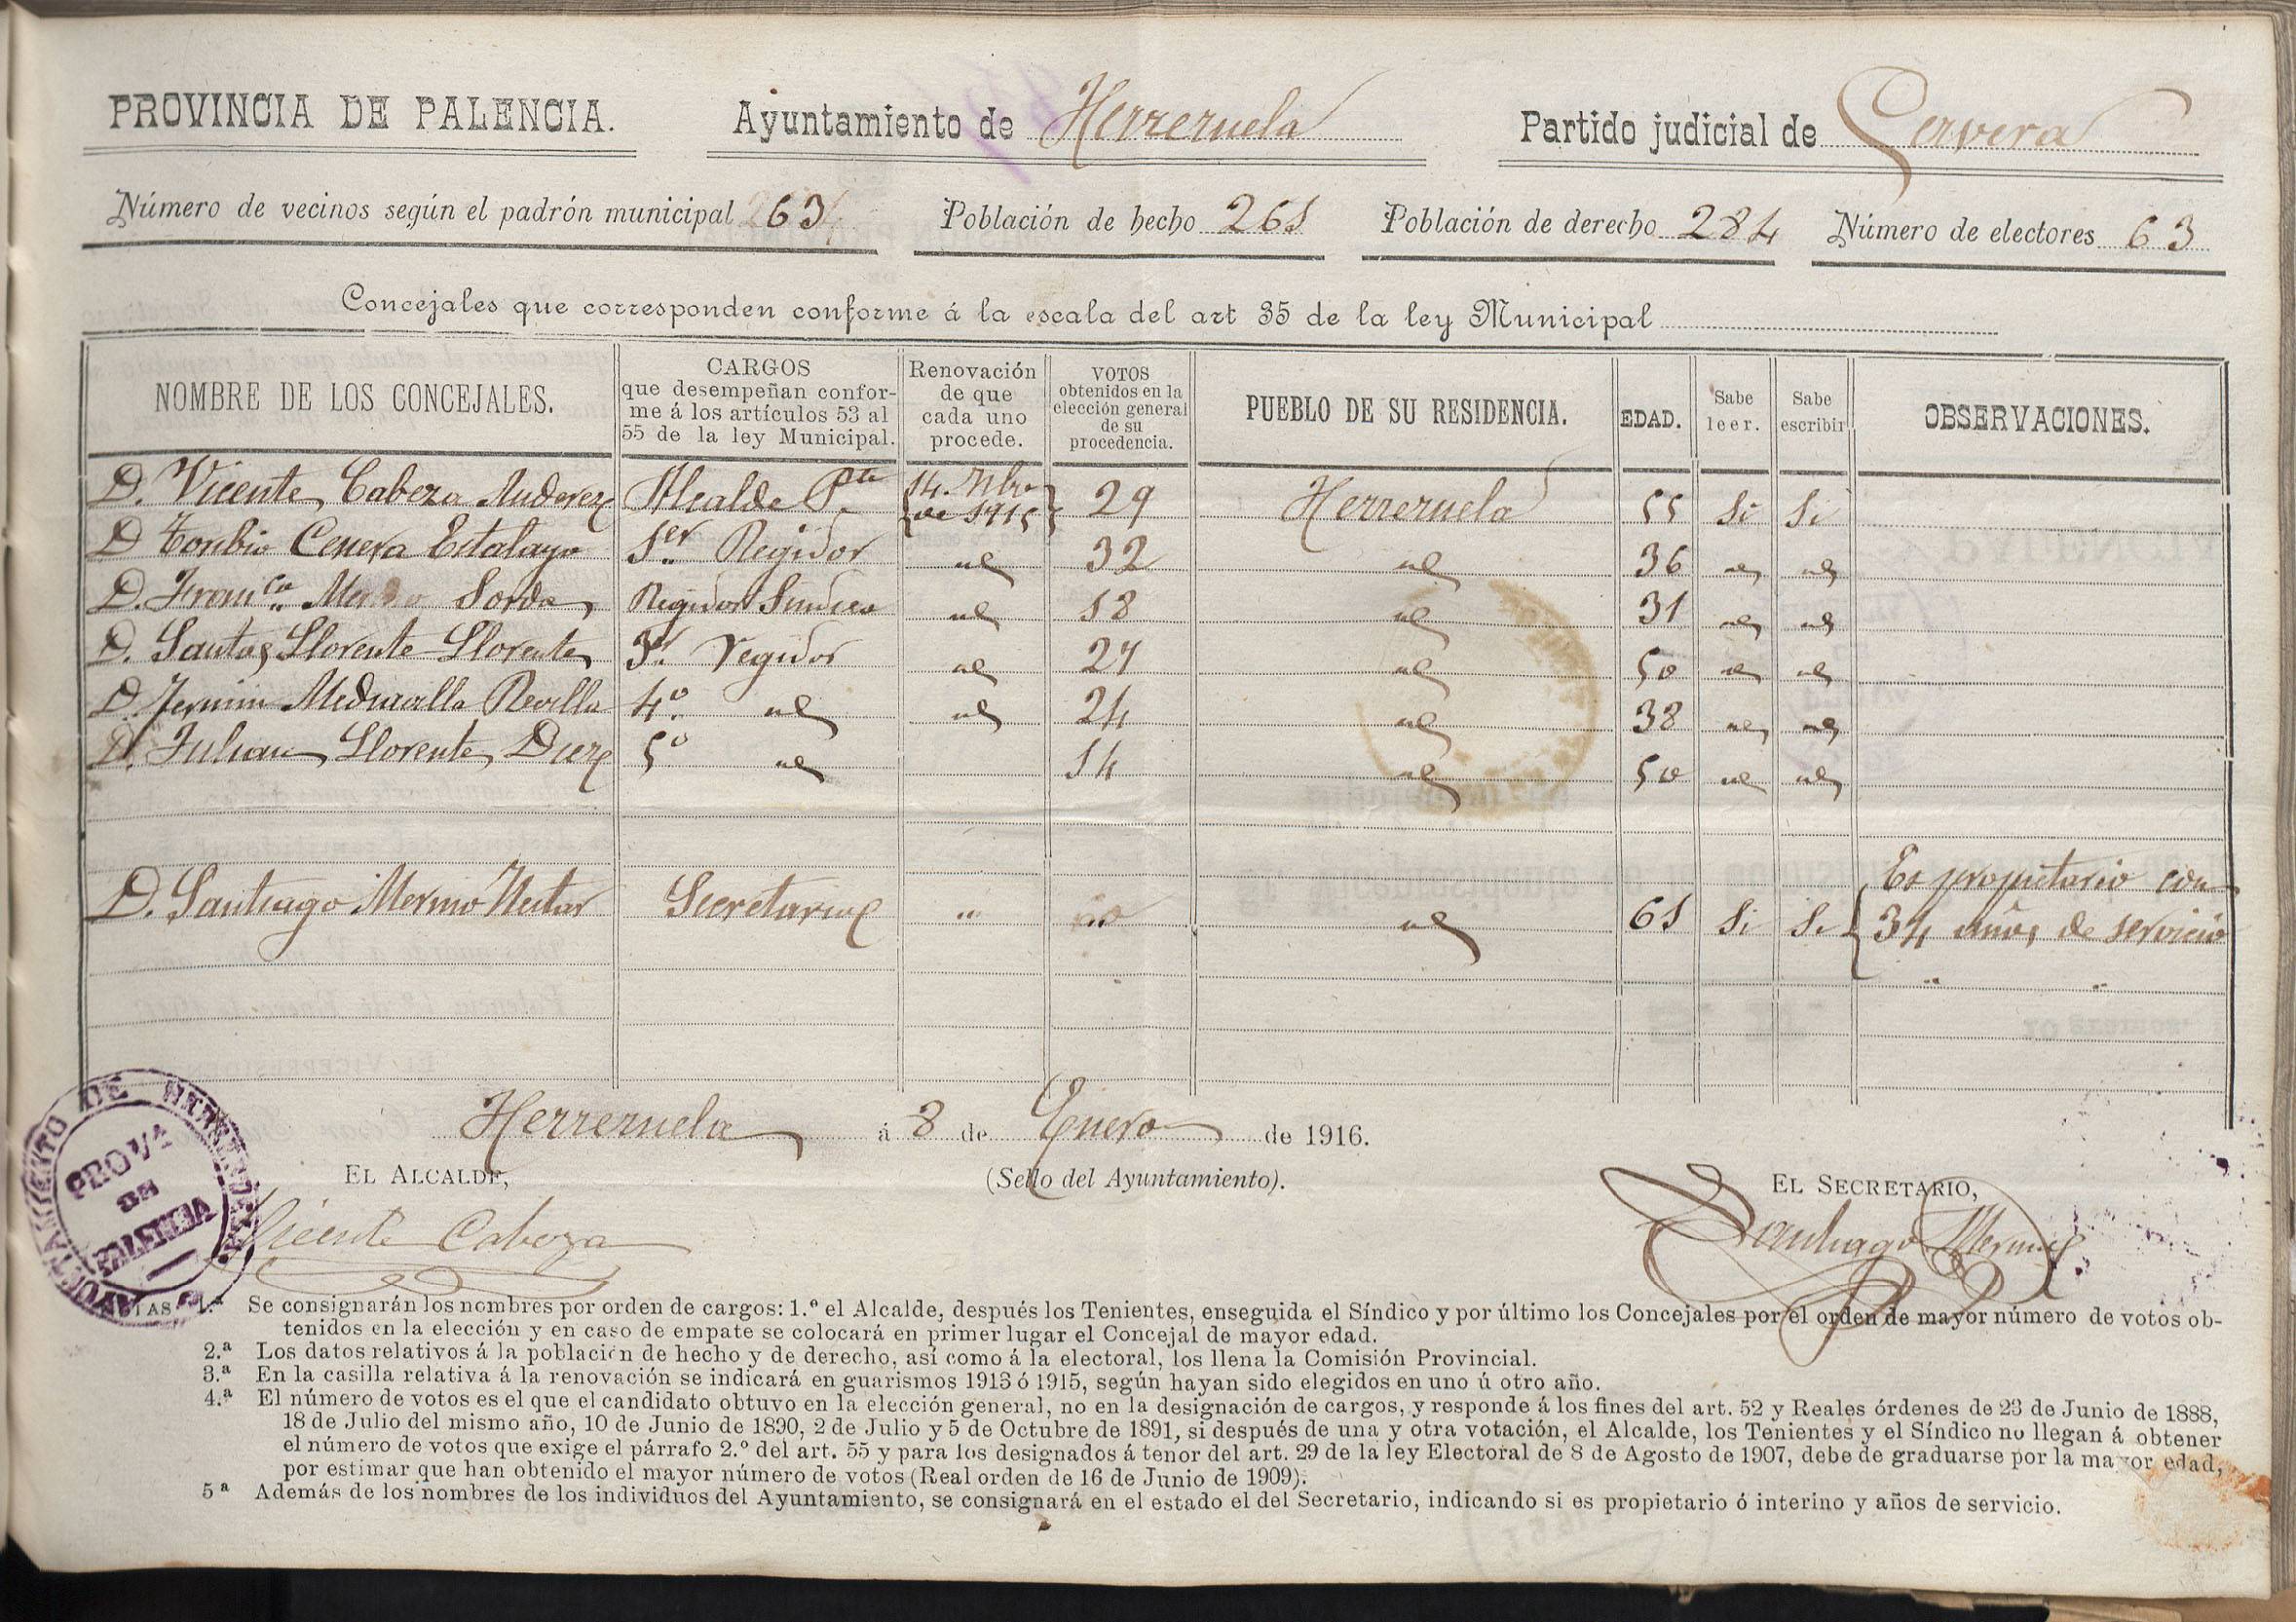 PROVINCIA DE PALENCIA. Ayuntamiento de Herreruela Partido judicial de Cervera
Número de vecinos según el padrón municipal 263 Población de hecho 261 Población de derecho 284 Número de electores 63
Concejales que corresponden conforme á la escala del art 35 de la ley Municipal
NOMBRE DE LOS CONCEJALES.
CARGOS
que desempeñan confor-
me á los artículos 53 al
55 de la ley Municipal.
Renovación
de que
cada uno
procede.
VOTOS
obtenidos en la
elección general
de su
procedencia.
PUEBLO DE SU RESIDENCIA.
EDAD.
Sabe
leer.
Sabe
escribir
OBSERVACIONES.
D. Vicente Cabeza Anderez Alcalde Pte 14. Nbre de 1915 29 Herreruela 55 Si Si
D Toribio Cenera Estalayo 1er Regidor id 32 id 36 id id
D. Franco Sorda Regidor Sindico id 18 id 31 id id
D. Santos Llorente Llorente 3er regidor id 27 id 50 id id
D. Fermin Mediavilla Revilla 4º id id 24 id 38 id id
D. Julian Llorente Diez 5º id 14 id 50 id id
D. Santiago Merino Secretario " " id 61 Si Si Es propietario con
34 años de servicio
" "
Herreruela á 8 de Enero de 1916.
EL ALCALDE, (Sello del Ayuntamiento). EL SECRETARIO,
Vicente Cabeza Santiago Merino
AYUNTAMIENTO DE HERRERUELA
PROVA
DE
PALENCIA
NOTAS 1.ª Se consignarán los nombres por orden de cargos: 1.º el Alcalde, después los Tenientes, enseguida el Síndico y por último los Concejales por el orden de mayor número de votos ob-
tenidos en la elección y en caso de empate se colocará en primer lugar el Concejal de mayor edad.
2.ª Los datos relativos á la población de hecho y de derecho, así como á la electoral, los llena la Comisión Provincial.
3.ª En la casilla relativa á la renovación se indicará en guarismos 1913 ó 1915, según hayan sido elegidos en uno ú otro año.
4.ª El número de votos es el que el candidato obtuvo en la elección general, no en la designación de cargos, y responde á los fines del art. 52 y Reales órdenes de 23 de Junio de 1888,
18 de Julio del mismo año, 10 de Junio de 1890, 2 de Julio y 5 de Octubre de 1891, si después de una y otra votación, el Alcalde, los Tenientes y el Síndico no llegan á obtener
el número de votos que exige el párrafo 2.º del art. 55 y para los designados á tenor del art. 29 de la ley Electoral de 8 de Agosto de 1907, debe de graduarse por la mayor edad,
por estimar que han obtenido el mayor número de votos (Real orden de 16 de Junio de 1909).
5ª Además de los nombres de los individuos del Ayuntamiento, se consignará en el estado el del Secretario, indicando si es propietario ó interino y años de servicio.